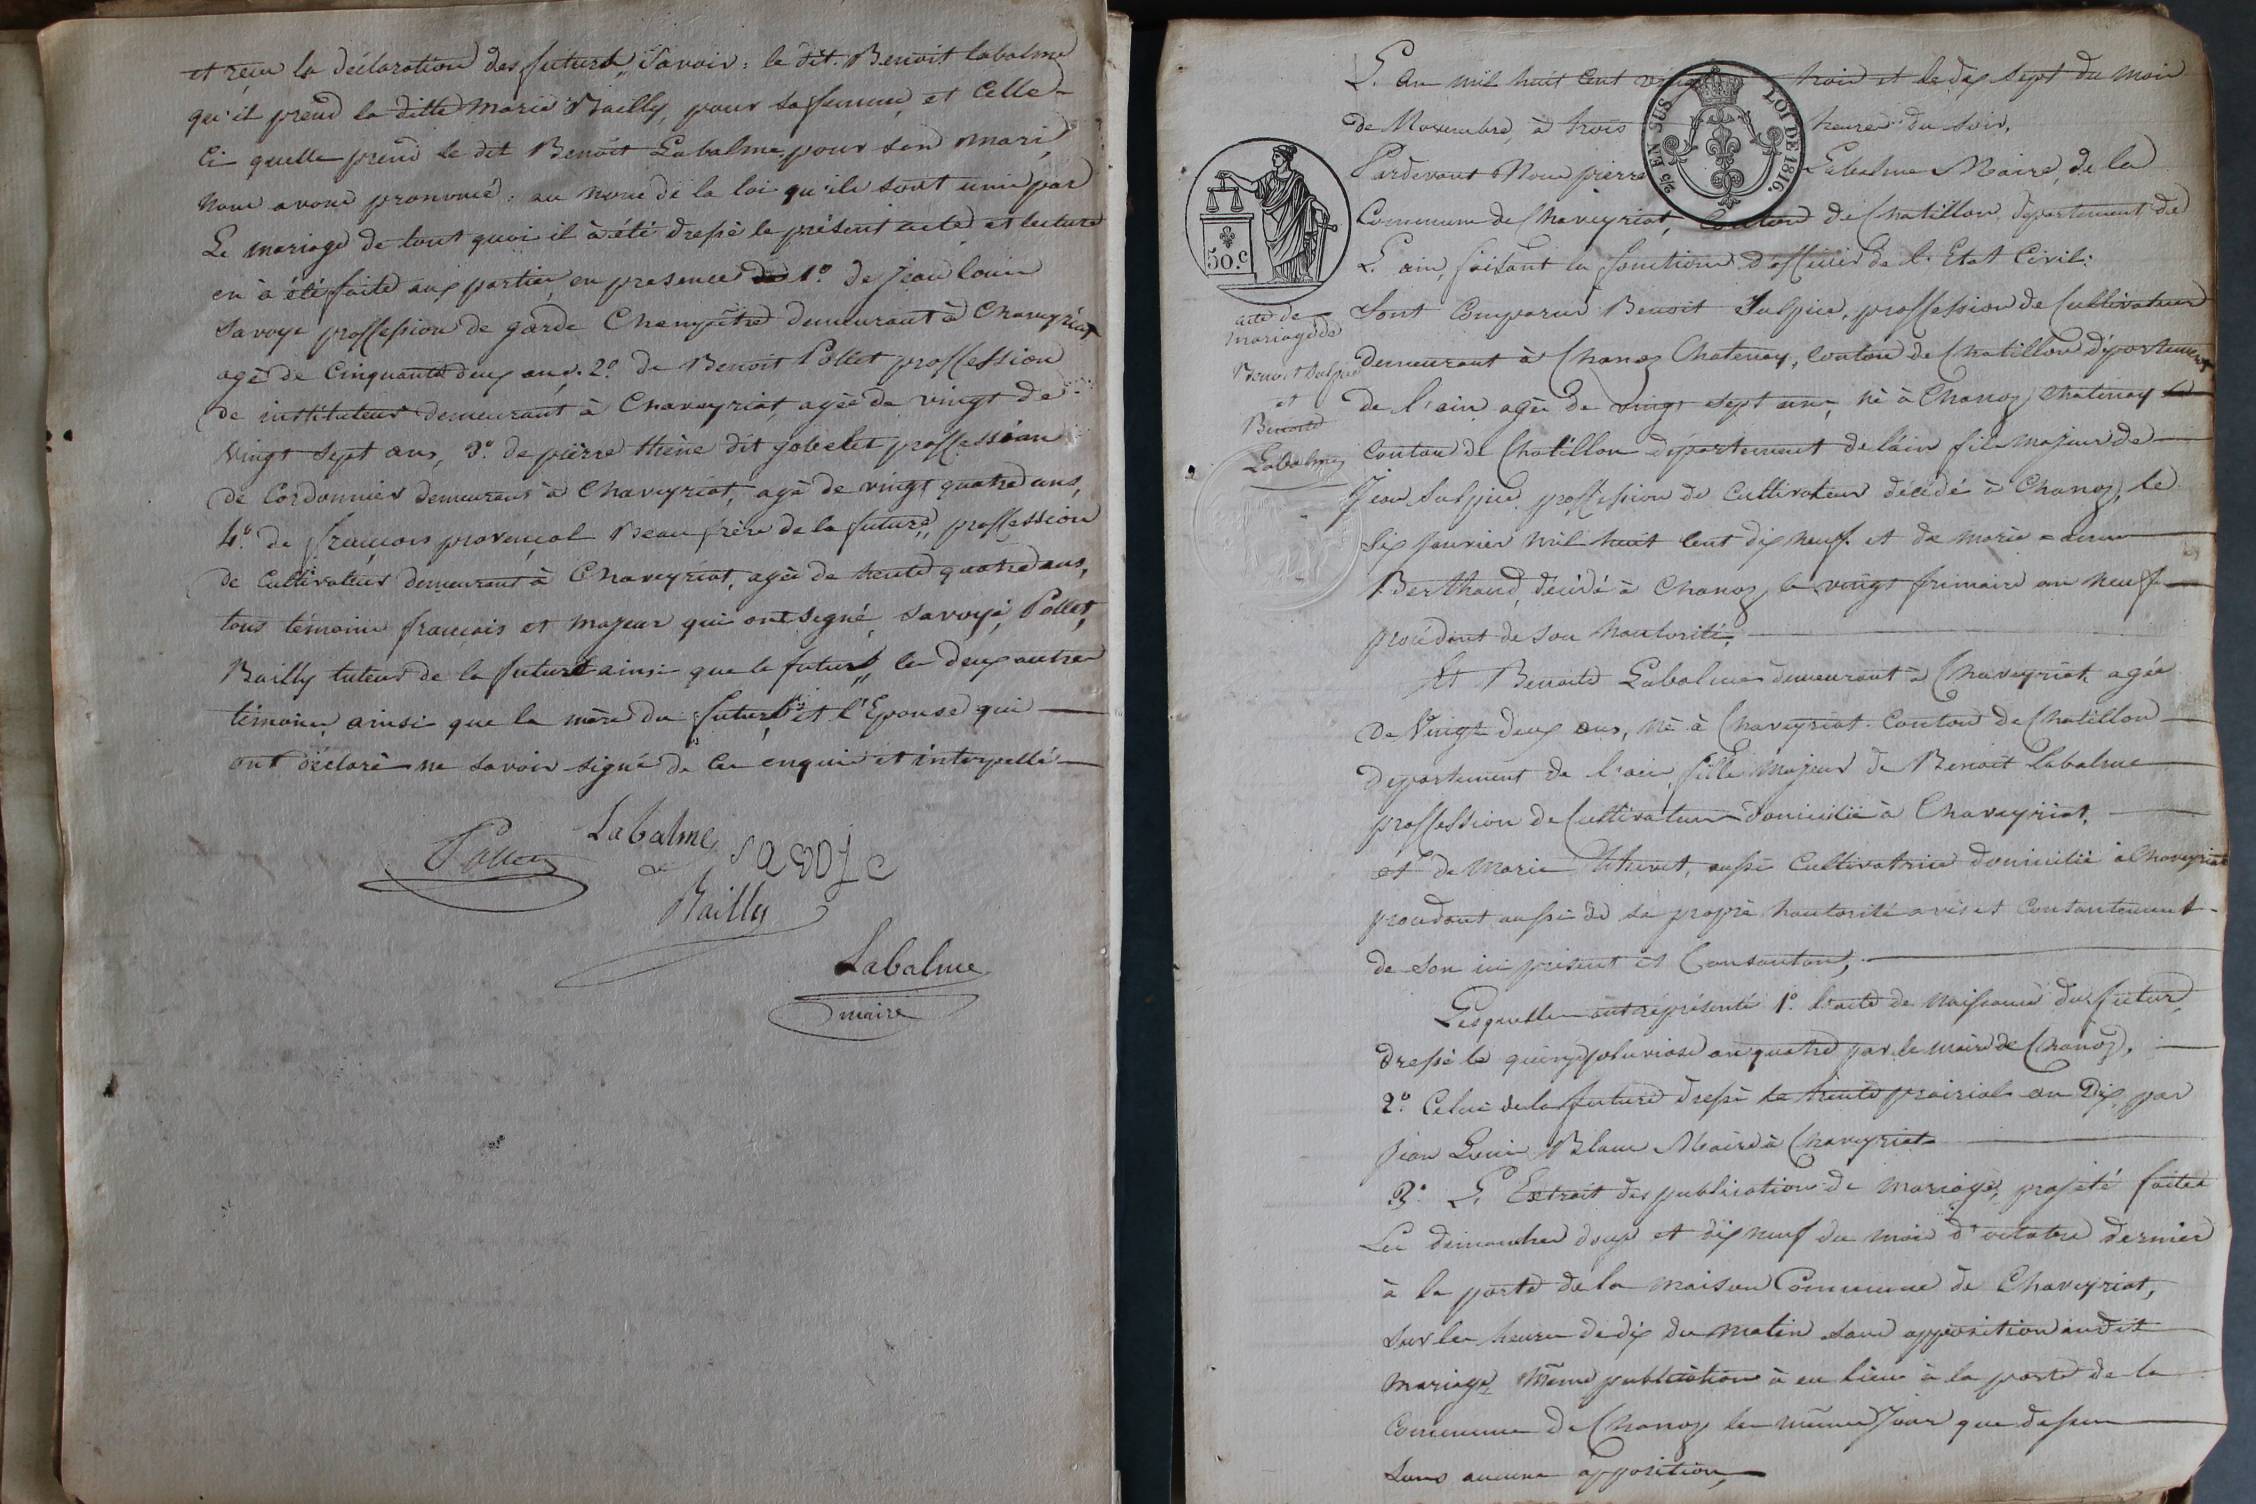 et reçu la déclaration des futurs, Savoir: le dit Benoit Labalme
qu'il prend la ditte Marie Bailly, pour sa femme, et Celle-
Ci quelle prend le dit Benoit Labalme pour son mari,
nous avons prononcé, au nom de la loi qu'ils sont unis par
Le mariage de tout quoi il à été dressé le présent acte et lecture
en à été faite aux parties, en presence de 1.º de jean louis
Savoye proffession de garde Champêtre demeurant à Chaveyriat
agé de Cinquante deux ans. 2.º de Benoit Pollet proffession
de instituteur demeurant à Chaveyriat, agée de vingt de
vingt sept ans, 3.º de pierre thène dit jobelet proffession
de Cordonnier demeurant à Chaveyriat, agé de vingt quatre ans,
4.º de françois provençal Beau frère de la future, proffession
de Cultivateur demeurant à Chaveyriat, agée de trente quatre ans,
tous témoins français et majeur qui ont signé, savoye, Pollet,
Bailly tuteur de la future ainsi que le futur, les deux autres
témoins, ainsi que la mère du futur, et l'Epouse qui
ont déclaré ne savoir signé de ce enquis et interpellé
Labalme
Pollet
savoye
Bailly
Labalme
maire
L'an mil huit Cent vingt trois et le dix sept du mois
de Novembre, à trois heures du soir,
EN SUS
LOI DE 1816
Pardevant Nous pierre Labalme Maire, de la
Commune de Chaveyriat, Canton de Chatillon, departement de
50.c
L'ain, faisant les fonctions d'officier de l'Etat Civil:
Sont Comparus Benoit Sulpice, proffession de Cultivateur
acte de
mariage de
Benoit Sulpice
et
Benoite
Labalme
demeurant à Chanoz Chatenay, Canton de Chatillon département
de l'ain agée de vingt sept ans, né à Chanoz Chatenay
Canton de Chatillon département de l'ain fils majeur de
Jean Sulpice proffession de Cultivateur décédé à Chanoz, le
Six Janvier mil huit Cent dix neuf et de Marie
Berthaud, décédé à Chanoz le vingt frimaire an neuf
procédant de son hautorité,
Et Benoite Labalme demeurant à Chaveyriat, agée
de Vingt deux ans, né à Chaveyriat Canton de Chatillon
departement de l'ain, fille Majeur de Benoit Labalme
proffession de Cultivateur domicilié à Chaveyriat,
et de Marie aussi Cultivatrice domicilié à Chaveyriat
procédant aussi de sa propre hautorité avis et Consantement
de son ici présent et Consantan,
Lesquelles ont représenté 1.º l'acte de Naissance du futur,
dressé le quinze pluviose an quatre par le maire de Chanoz,
2.º Celui de la future dressé le trente prairial an Dix, par
jean Louis Blanc Maire à Chaveyriat
3.º L'Extrait des publications de Mariage, projété faites
Les dimanches douze et dix neuf du mois d'octobre dernier
à la porte de la maison Commune de Chaveyriat,
sur les heures de dix du matin sans opposition audit
mariage, même publication à eu lieu à la porte de la
Commune de Chanoz les même Jour que dessus
sans aucune opposition,